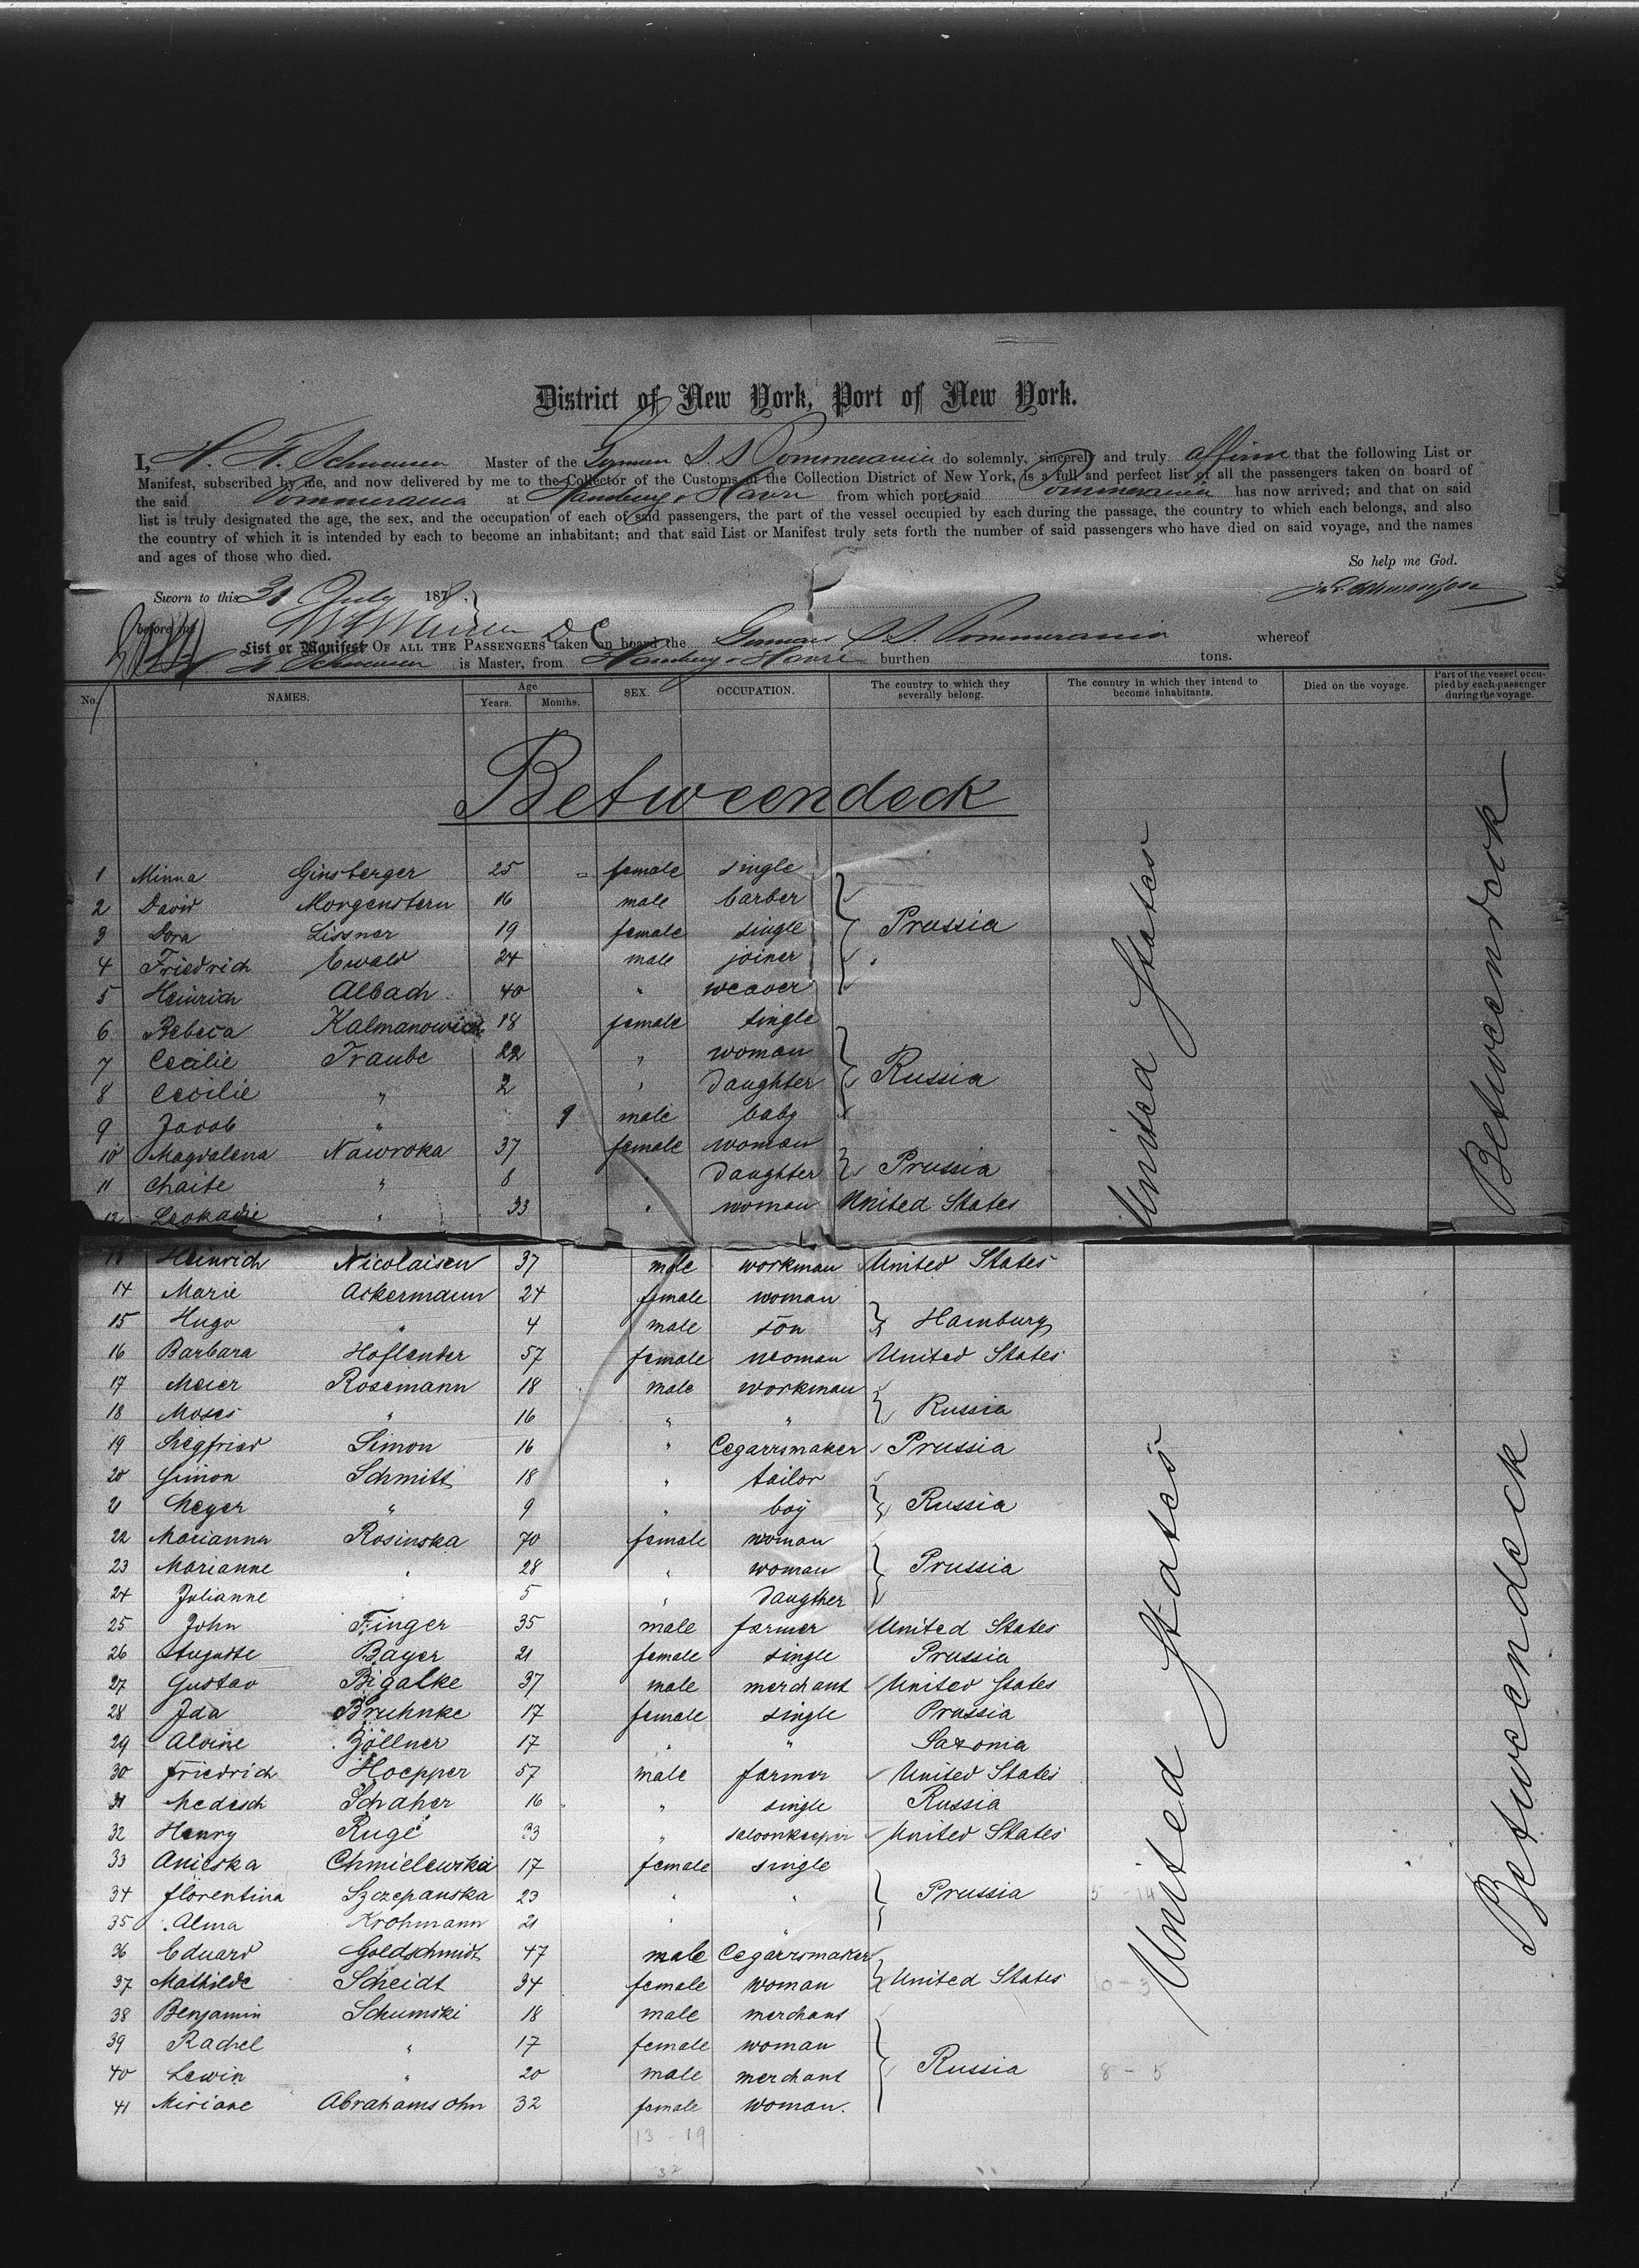 District of New York, Port of New York.
I, H. F. Schwensen Master of the German S. S. Pommerania do solemnly, sincerely and truly affirm that the following List or
Manifest, subscribed by me, and now delivered by me to the Collector of the Customs of the Collection District of New York, is a full and perfect list of all the passengers taken on board of
the said Pommerania at Hamburg & Havre from which port said Pommerania has now arrived; and that on said
list is truly designated the age, the sex, and the occupation of each of said passengers, the part of the vessel occupied by each during the passage, the country to which each belongs, and also
the country of which it is intended by each to become an inhabitant; and that said List or Manifest truly sets forth the number of said passengers who have died on said voyage, and the names
and ages of those who died.
So help me God.
Sworn to this 31 July 1878.
before me
List or Manifest OF ALL THE PASSENGERS taken on board the German S. S. Pommerania whereof
Schwensen is Master, from Hamburg & Havre burthen tons.
No. NAMES. Age Years. Months. SEX. OCCUPATION. The country to which they severally belong. The country in which they intend to become inhabitants. Died on the voyage. Part of the vessel occupied by each passenger during the voyage.
Betweendeck
1 Minna Ginsberger 25 female single
2 David Morgenstern 16 male barber
3 Dora Lissner 19 female single Prussia
4 Friedrich Ewald 24 male joiner
5 Heinrich Albach 40 " weaver
6 Rebeca Kalmanowich 18 female single
7 Cecilie Traube 22 " woman
8 Cecilie " 2 " daughter Russia
9 Jacob " 9 male baby
10 Magdalena Nawroka 37 female woman
11 Chaite " 8 " daughter Prussia
12 Leokadie " 33 " woman United States
13 Heinrich Nicolaisen 37 male workman United States
14 Marie Ackermann 24 female woman
15 Hugo " 4 male son Hamburg
16 Barbara Hoflender 57 female woman United States
17 Meier Rosemann 18 male workman
18 Moses " 16 " " Russia
19 Siegfried Simon 16 " Cegarrsmaker Prussia
20 Simon Schmitt 18 " tailor
21 Meyer " 9 " boy Russia
22 Marianna Rosinska 70 female woman
23 Marianne " 28 " woman Prussia
24 Julianne " 5 " daugther
25 John Finger 35 male farmer United States
26 Auguste Bayer 21 female single Prussia
27 Gustav Bigalke 37 male merchant United States
28 Ida Bruhnke 17 female single Prussia
29 Alvine Zöllner 17 " " Saxonia
30 Friedrich Hoepper 57 male farmer United States
31 Medesch Schaher 16 " single Russia
32 Henry Ruge 33 " saloonkeeper United States
33 Anieska Chmielewska 17 female single
34 Florentina Szczepanska 23 " " Prussia
35 Alma Krohmann 21 " "
36 Eduard Goldschmidt 47 male Cegarrsmaker
37 Mathilde Scheidt 34 female woman United States
38 Benjamin Schumski 18 male merchant
39 Rachel " 17 female woman
40 Lewin " 20 male merchant Russia
41 Miriane Abrahamsohn 32 female woman.
United States
Betweendeck
United States
Betweendeck
5 - 14
8 - 5
13 - 19
32